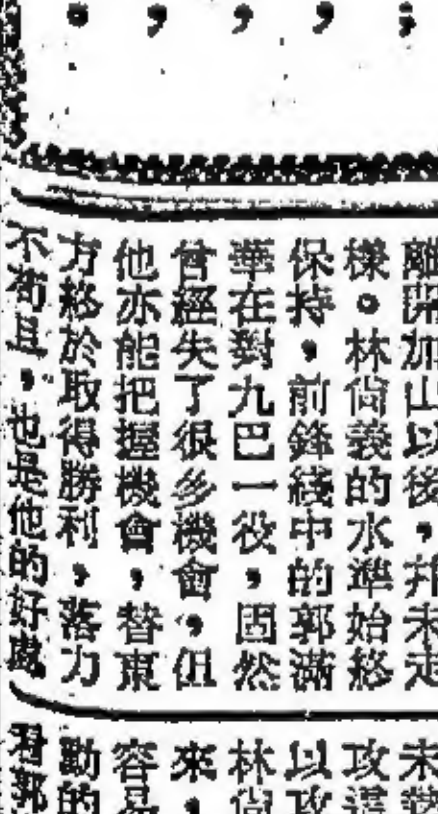 離開加山以後，並未走
樣。林尙義的水準始終
保持，前鋒綫中的郭滿
華在對九巴一役，固然
曾經失了很多機會，但
他亦能把握機會，替東
方終於取得勝利，落力
不苟且，也是他的好處
未
攻
以攻
林尙
來，
容易
勤的
君郭